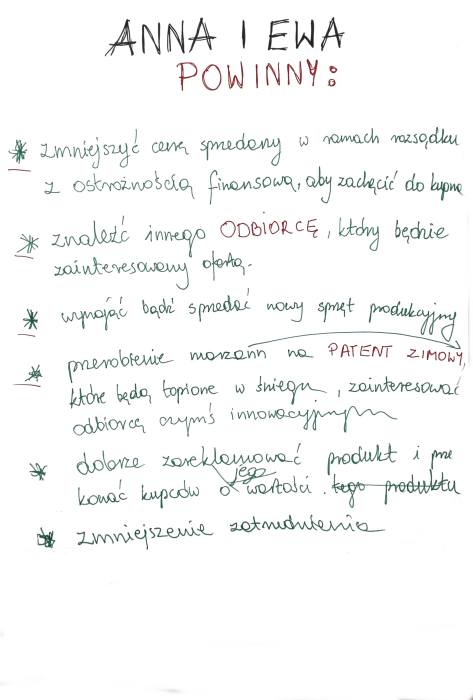 ANNA I EWA
POWINNY:
* zmniejszyć cenę sprzedaży w ramach rozsądku
z ostrożnością finansową, aby zachęcić do kupna
* znaleźć innego ODBIORCĘ, który będzie
zainteresowany ofertą.
* wynająć bądź sprzedać nowy sprzęt produkcyjny
* przerobienie marzann na PATENT ZIMOWY,
które będą topione w śniegu, zainteresować
odbiorcę czymś innowacyjnym
* dobrze zareklamować produkt i prze
konać kupców o jego wartości. tego produktu
* zmniejszenie zatrudnienia